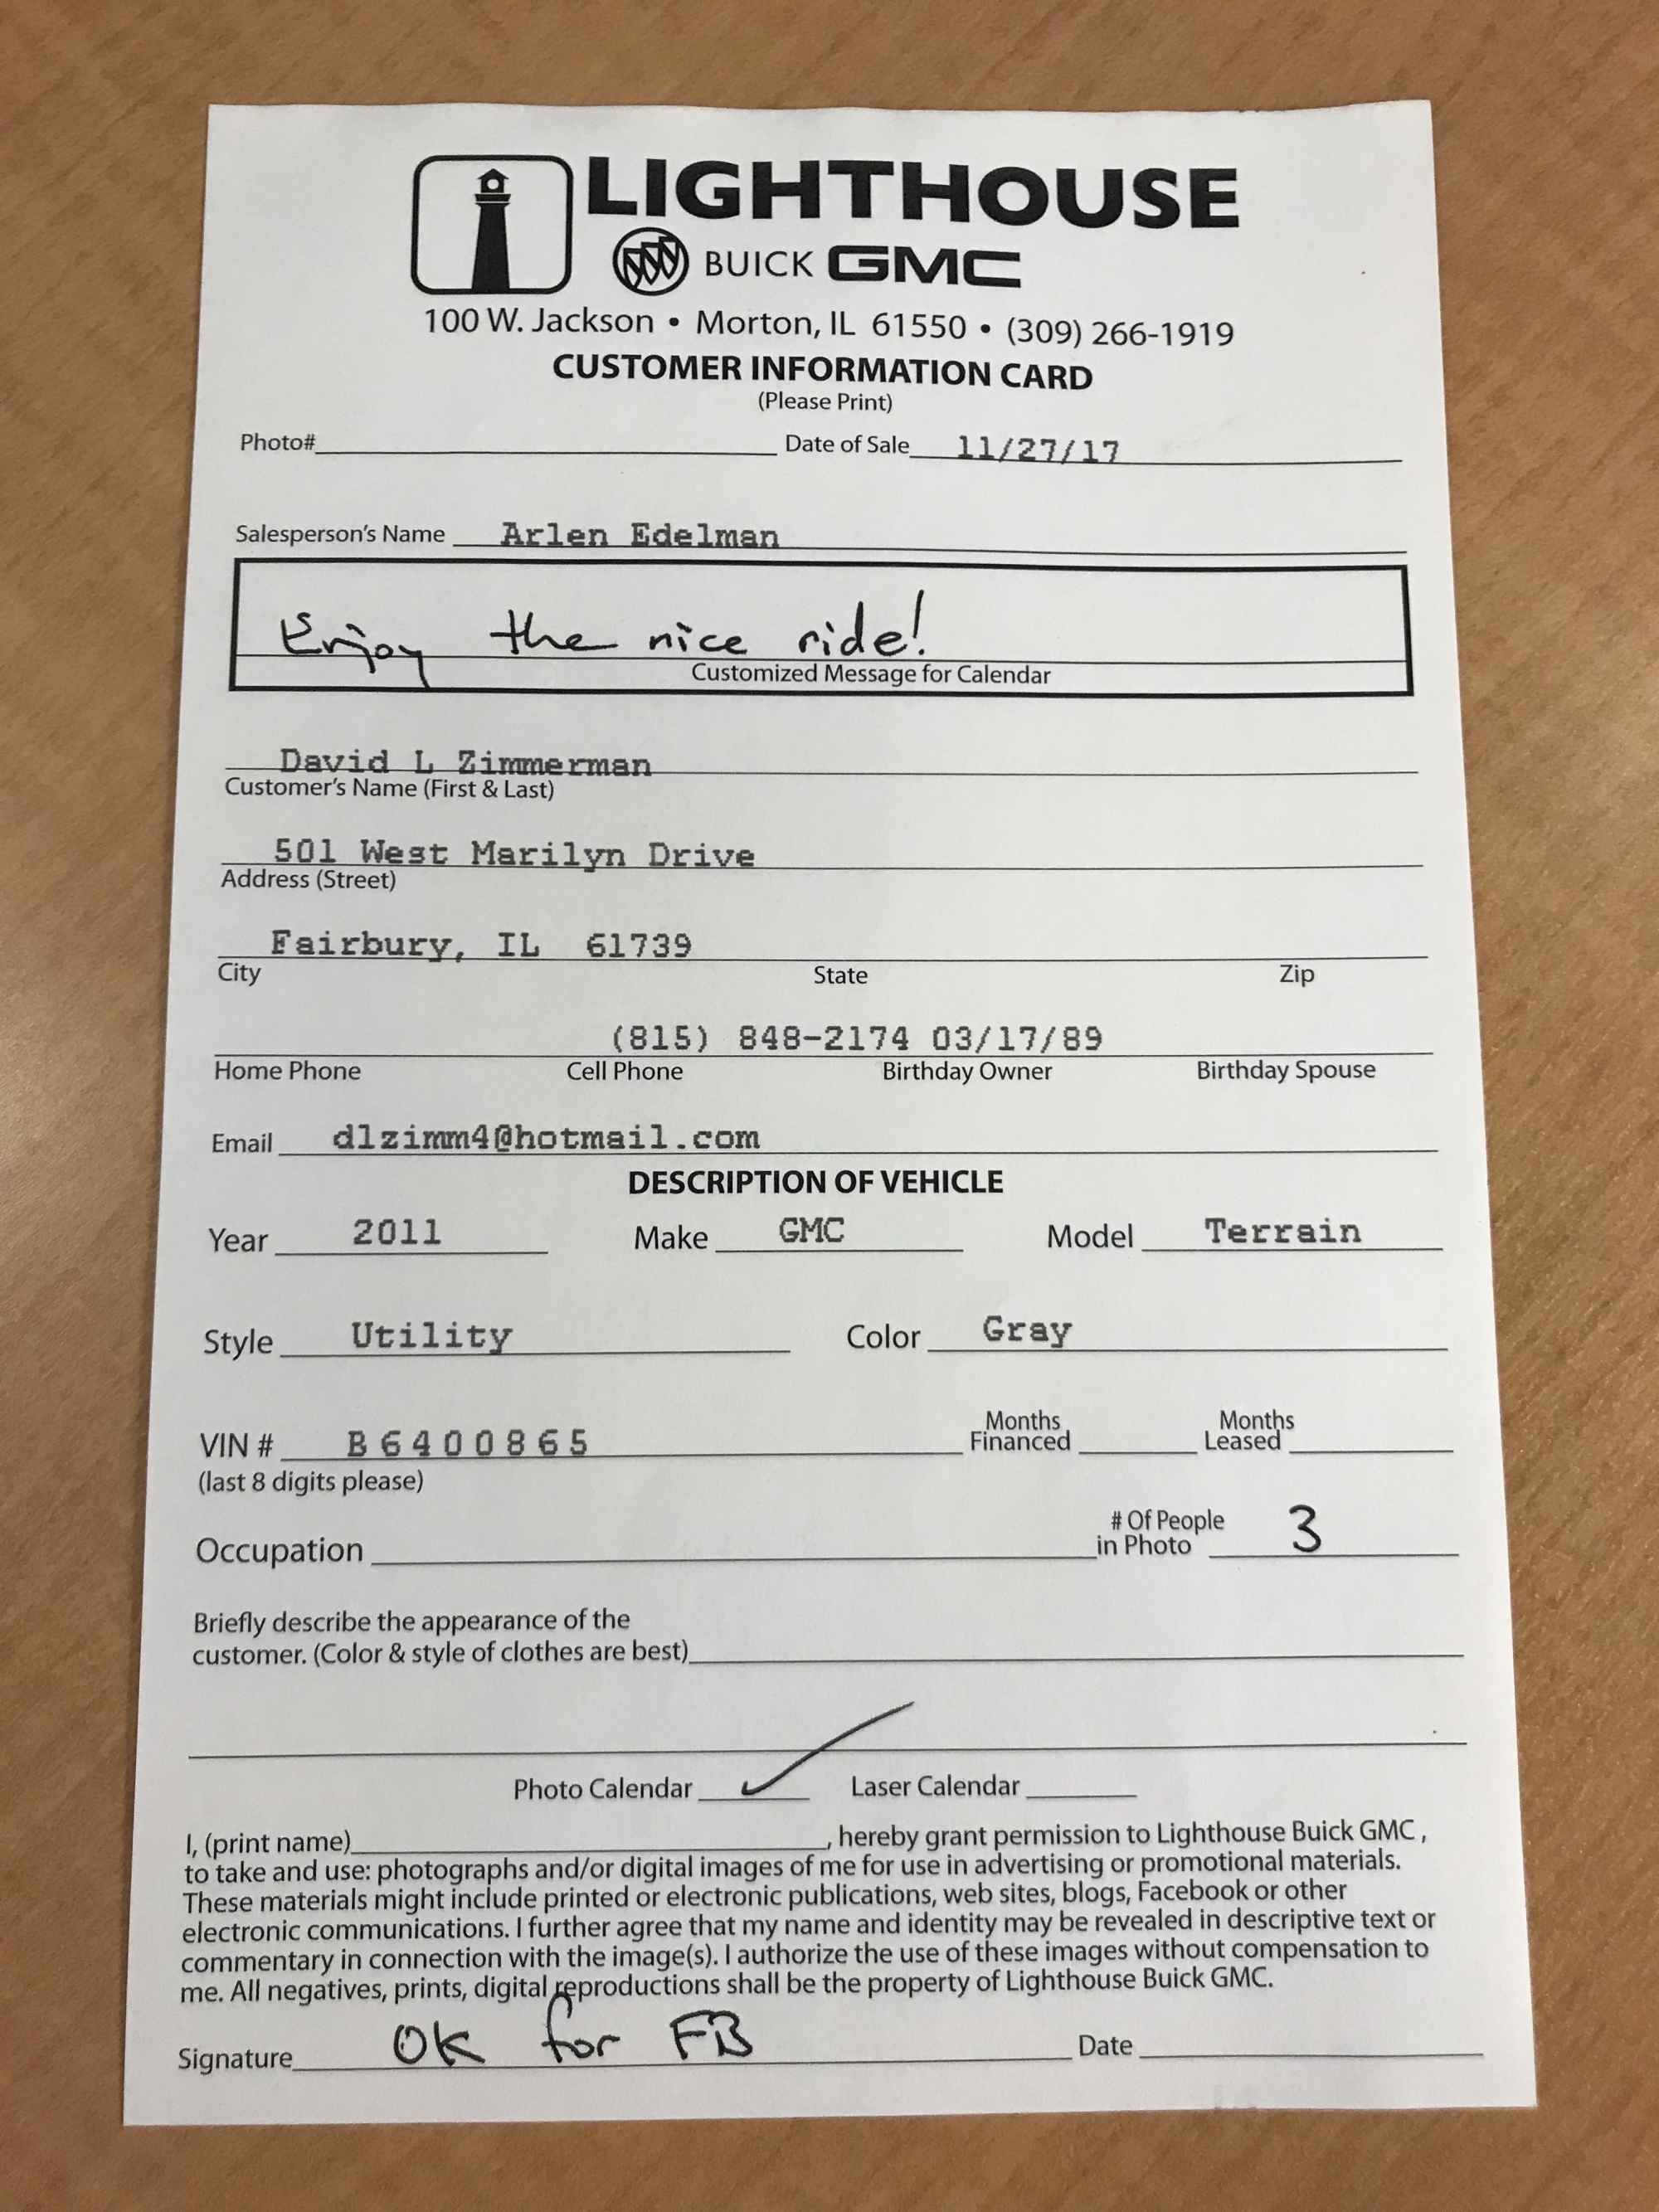 LIGHTHOUSE
BUICK GMC
100 W. Jackson • Morton, IL 61550 • (309) 266-1919
CUSTOMER INFORMATION CARD
(Please Print)
Photo# Date of Sale 11/27/17
Salesperson's Name Arlen Edelman
Enjoy the nice ride!
Customized Message for Calendar
David L Zimmerman
Customer's Name (First & Last)
501 West Marilyn Drive
Address (Street)
Fairbury, IL 61739
City State Zip
(815) 848-2174 03/17/89
Home Phone Cell Phone Birthday Owner Birthday Spouse
Email dlzimm4@hotmail.com
DESCRIPTION OF VEHICLE
Year 2011 Make GMC Model Terrain
Style Utility Color Gray
VIN # B6400865 Months Financed Months Leased
(last 8 digits please)
Occupation # Of People in Photo 3
Briefly describe the appearance of the
customer. (Color & style of clothes are best)
Photo Calendar ✓ Laser Calendar
I, (print name) , hereby grant permission to Lighthouse Buick GMC ,
to take and use: photographs and/or digital images of me for use in advertising or promotional materials.
These materials might include printed or electronic publications, web sites, blogs, Facebook or other
electronic communications. I further agree that my name and identity may be revealed in descriptive text or
commentary in connection with the image(s). I authorize the use of these images without compensation to
me. All negatives, prints, digital reproductions shall be the property of Lighthouse Buick GMC.
Signature OK for FB Date